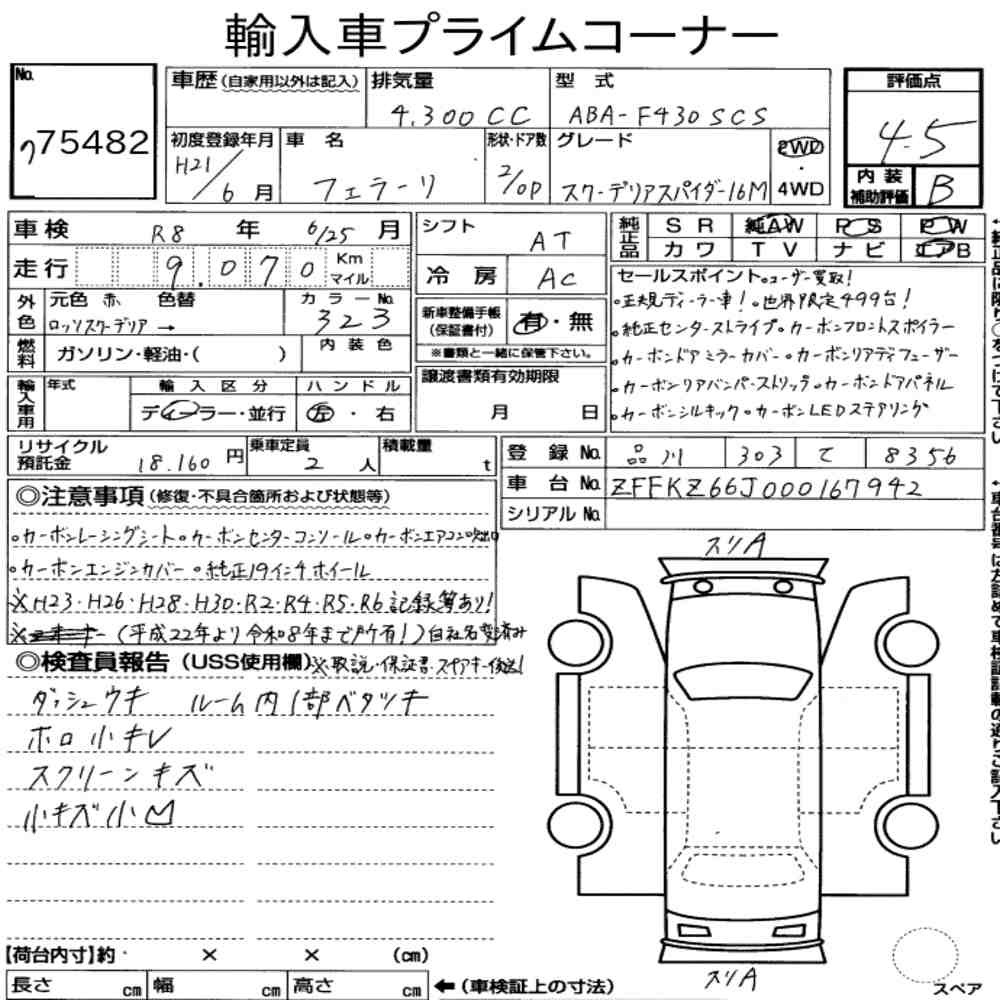 輸入車プライムコーナー
No.
75482
車歴(自家用以外は記入)
排気量
4.300 CC
型式
ABA-F430SCS
評価点
4.5
初度登録年月
H21/6月
車名
フェラーリ
形状・ドア数
2/OP
グレード
スクーデリアスパイダー16M
2WD
・
4WD
内装
補助評価
B
車検 R8年 6/25月
走行 9.070 Km マイル
外色
元色 赤 色替
ロッソスクーデリア →
カラーNo.
323
燃料
ガソリン・軽油・( )
内装色
輸入車用
年式
輸入区分
ディーラー・並行
ハンドル
左・右
シフト
AT
冷房
AC
新車整備手帳
(保証書付)
有・無
※書類と一緒に保管下さい。
譲渡書類有効期限
月 日
純正品
SR 純AW PS PW
カワ TV ナビ エアB
セールスポイント・ユーザー買取!
・正規ディーラー車!・世界限定499台!
・純正センターストライプ・カーボンフロントスポイラー
・カーボンドアミラーカバー・カーボンリアディフューザー
・カーボンリアバンパーストリップ・カーボンドアパネル
・カーボンシルキック・カーボンLEDステアリング
リサイクル
預託金
18.160円
乗車定員
2人
積載量
t
登録No. 品川 303 て 8356
車台No. ZFFKZ66J000167942
シリアルNo.
◎注意事項(修復・不具合箇所および状態等)
・カーボンレーシングシート・カーボンセンターコンソール・カーボンエアコン吹出口
・カーボンエンジンカバー・純正19インチホイール
※H23・H26・H28・H30・R2・R4・R5・R6記録簿あり!
※(平成22年より令和8年まで所有!)自社名変済み
◎検査員報告(USS使用欄)※取説・保証書・スペアキー後送!
ダッシュウキ ルーム内1部ベタツキ
ホロ小キレ
スクリーンキズ
小キズ小凹
スリA
スリA
スペア
【荷台内寸】約 × × (cm)
長さ cm 幅 cm 高さ cm ←(車検証上の寸法)